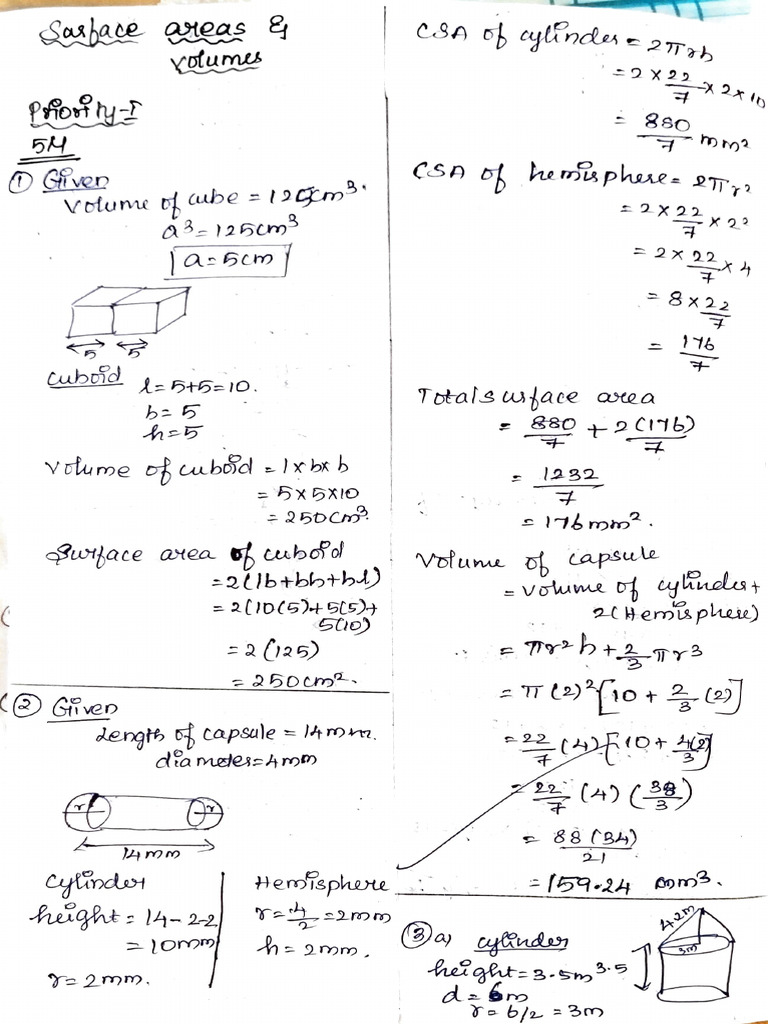 Surface areas &
volumes
Priority-I
5M
① Given
Volume of cube = 125cm³.
a³ = 125cm³
a = 5cm
5 5
cuboid l = 5+5 = 10.
b = 5
h = 5
Volume of cuboid = l×b×h
= 5×5×10
= 250cm³.
Surface area of cuboid
= 2(lb+bh+hl)
= 2(10(5)+5(5)+
5(10)
= 2(125)
= 250cm².
② Given
Length of capsule = 14mm.
diameter = 4mm
r r
14mm
Cylinder
height = 14-2-2
= 10mm
r = 2mm.
Hemisphere
r = 4/2 = 2mm
h = 2mm.
CSA of cylinder = 2πrh
= 2 × 22/7 × 2 × 10
= 880/7 mm²
CSA of hemisphere = 2πr²
= 2 × 22/7 × 2²
= 2 × 22/7 × 4
= 8 × 22/7
= 176/7
Total surface area
= 880/7 + 2(176)/7
= 1232/7
= 176mm².
Volume of capsule
= Volume of cylinder +
2(Hemisphere)
= πr²h + 2/3 πr³
= π(2)²[10 + 2/3 (2)]
= 22/7 (4) [10 + 4(2)/3]
= 22/7 (4) (38/3)
= 88(34)/21
= 159.24 mm³.
③ a) cylinder
height = 3.5m
d = 6m
r = 6/2 = 3m
4.2m
3m
3.5